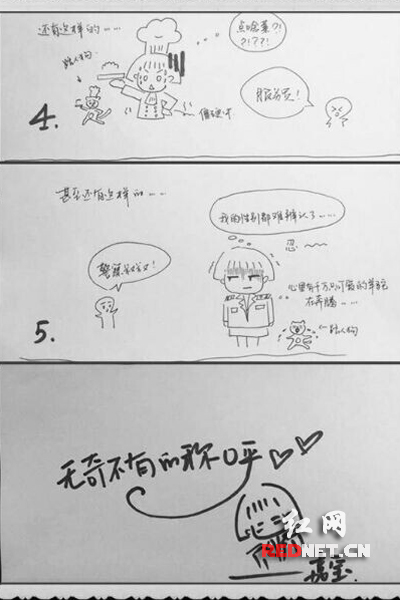 还有这样的……
点啥菜?!
?!???!
路人狗
服务员!
4.
甚至还有这样的……
我的性别都难辨认了……
忍
警察叔叔!
心里有千万只可爱的羊驼
在奔腾……
路人狗
5.
无奇不有的称呼
红网
REDNET.CN